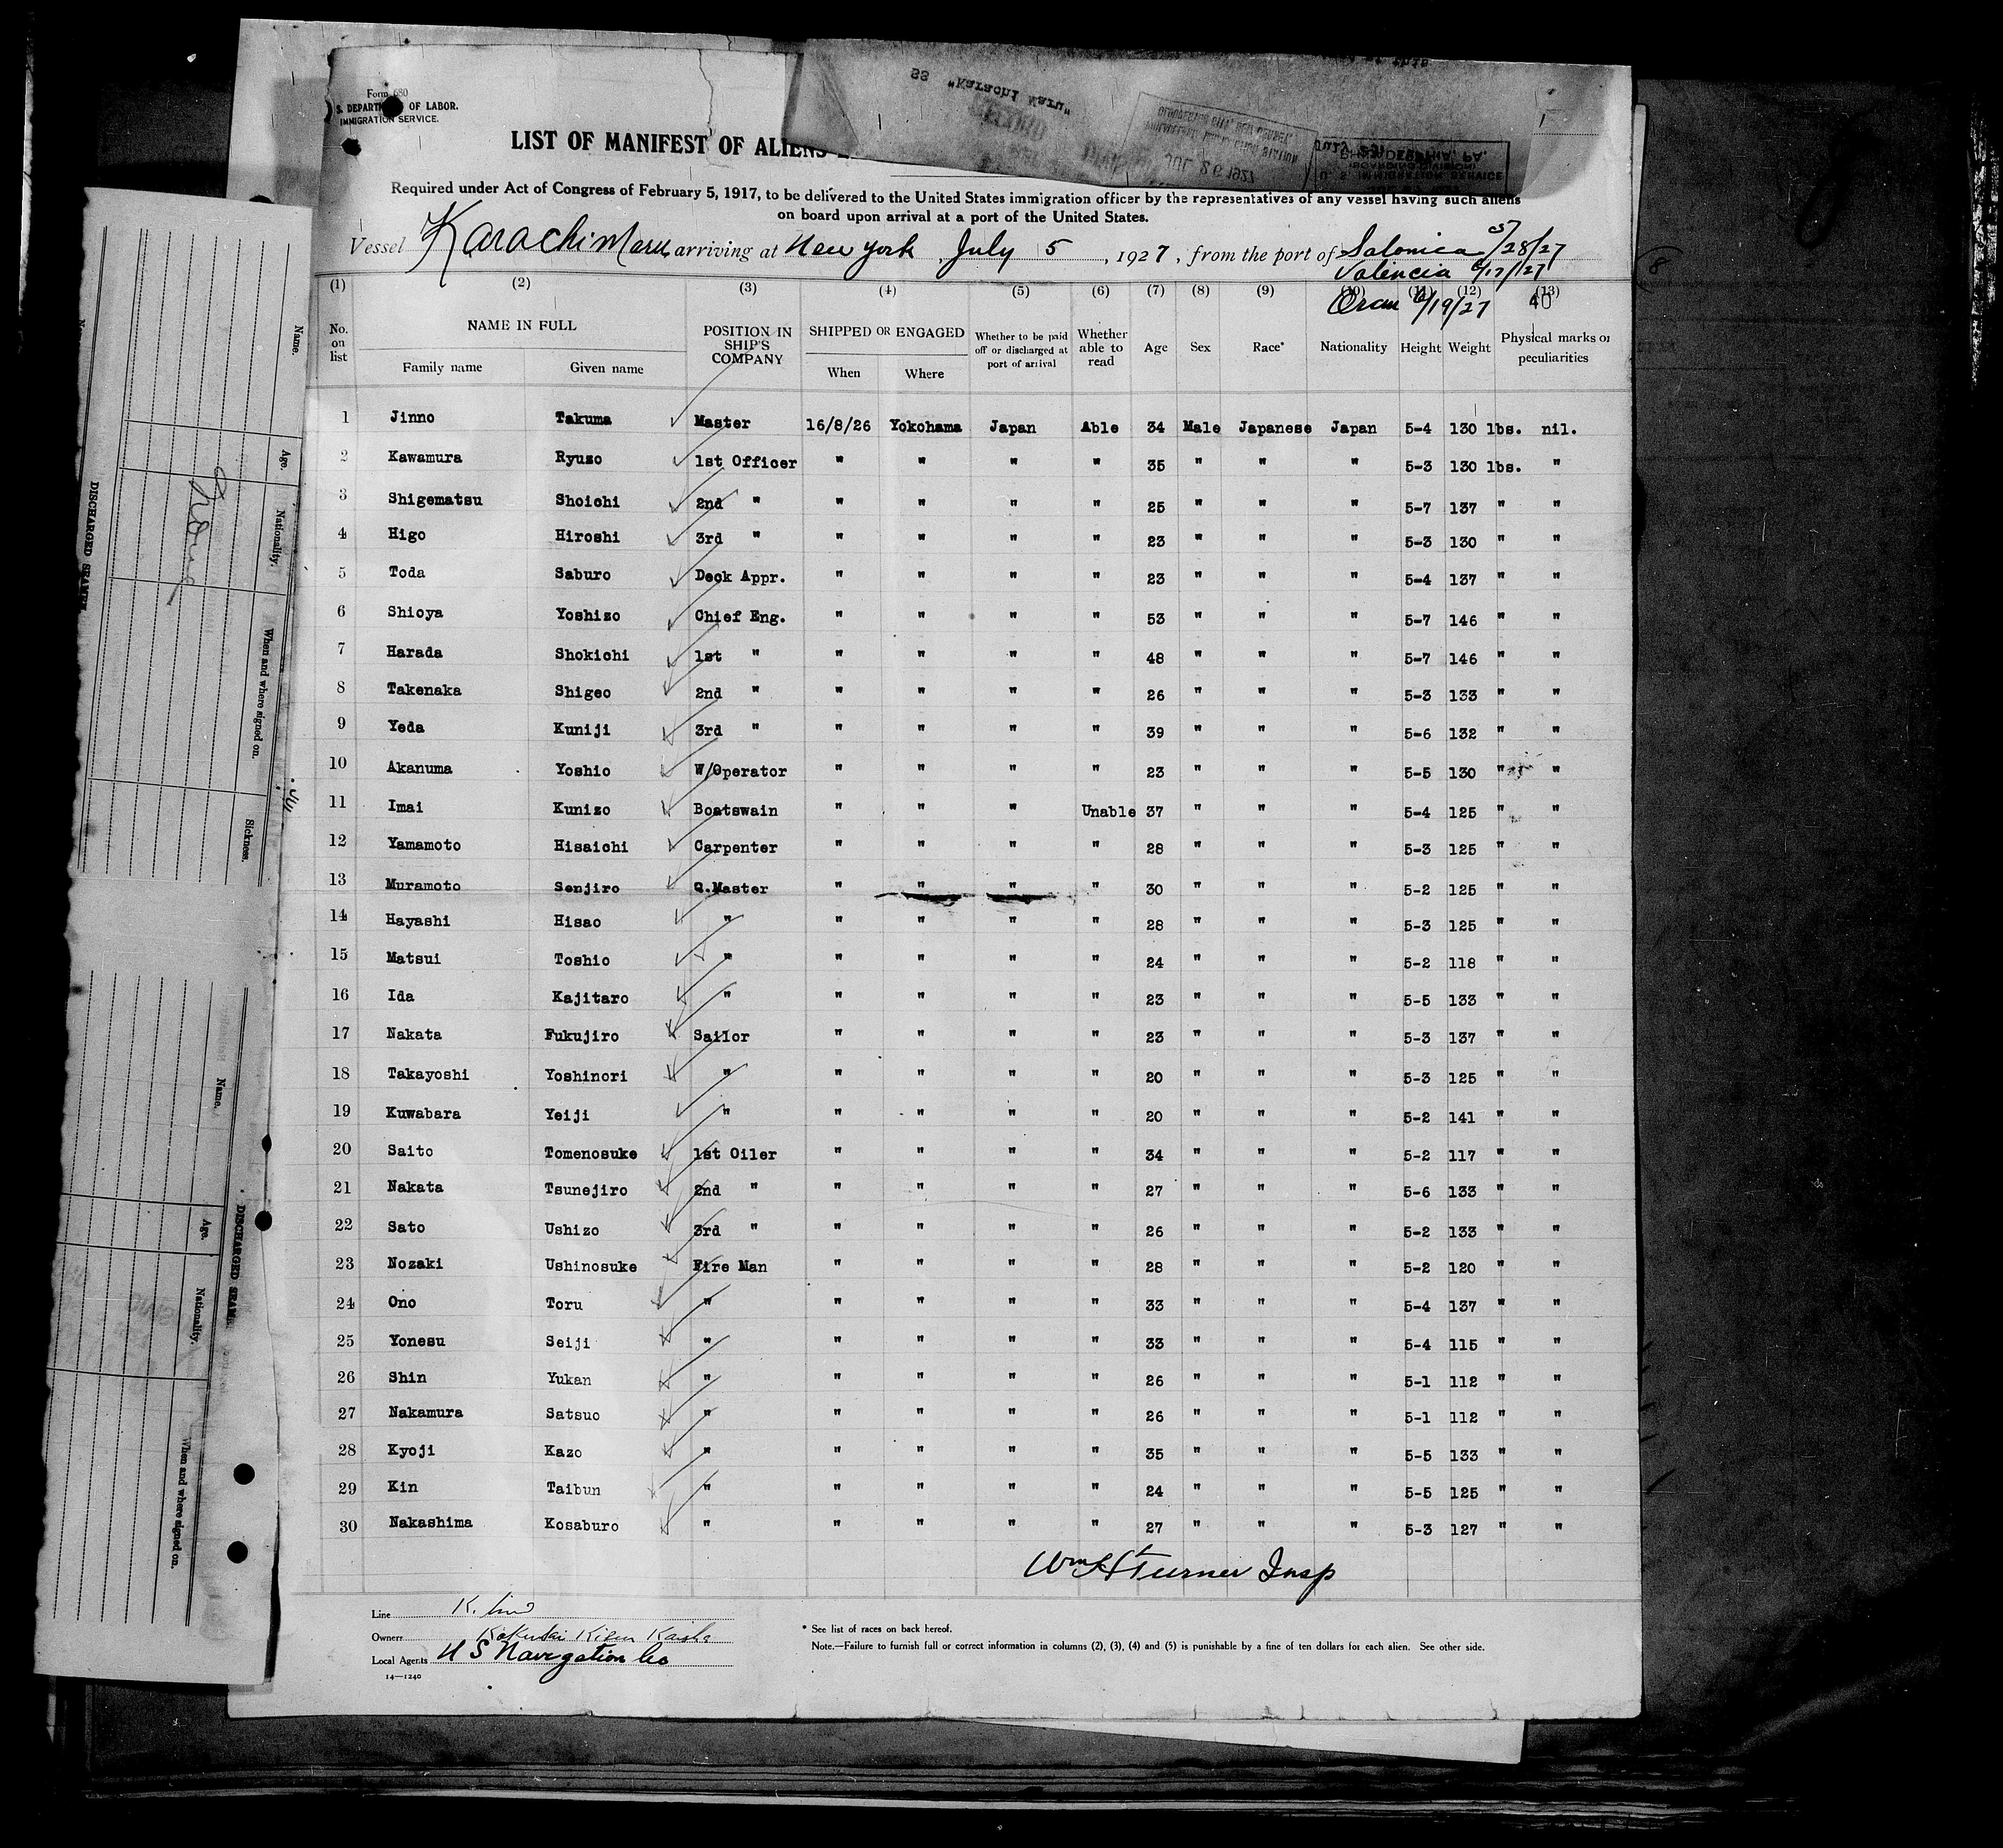 Form 680
S. DEPARTM OF LABOR.
IMMIGRATION SERVICE.
SS "Karachi Maru"
JUL 26 1927
LIST OF MANIFEST OF ALIENS
Required under Act of Congress of February 5, 1917, to be delivered to the United States immigration officer by the representatives of any vessel having such aliens
on board upon arrival at a port of the United States.
Vessel Karachi Maru arriving at New York, July 5, 1927, from the port of Salonica 5/28/27
Valencia 6/17/27
Oran 6/19/27
40
(1) (2) (3) (4) (5) (6) (7) (8) (9) (10) (11) (12) (13)
No. on list NAME IN FULL Family name Given name POSITION IN SHIP'S COMPANY SHIPPED OR ENGAGED When Where Whether to be paid off or discharged at port of arrival Whether able to read Age Sex Race* Nationality Height Weight Physical marks or peculiarities
1 Jinno Takuma Master 16/8/26 Yokohama Japan Able 34 Male Japanese Japan 5-4 130 lbs. nil.
2 Kawamura Ryuzo 1st Officer " " " " 35 " " " 5-3 130 lbs. "
3 Shigematsu Shoichi 2nd " " " " " 25 " " " 5-7 137 " "
4 Higo Hiroshi 3rd " " " " " 23 " " " 5-3 130 " "
5 Toda Saburo Deck Appr. " " " " 23 " " " 5-4 137 " "
6 Shioya Yoshizo Chief Eng. " " " " 53 " " " 5-7 146 " "
7 Harada Shokichi 1st " " " " " 48 " " " 5-7 146 " "
8 Takenaka Shigeo 2nd " " " " " 26 " " " 5-3 133 " "
9 Yeda Kuniji 3rd " " " " " 39 " " " 5-6 132 " "
10 Akanuma Yoshio W/Operator " " " " 23 " " " 5-5 130 " "
11 Imai Kunizo Boatswain " " " Unable 37 " " " 5-4 125 " "
12 Yamamoto Hisaichi Carpenter " " " " 28 " " " 5-3 125 " "
13 Muramoto Senjiro Q.Master " " " " 30 " " " 5-2 125 " "
14 Hayashi Hisao " " " " " 28 " " " 5-3 125 " "
15 Matsui Toshio " " " " " 24 " " " 5-2 118 " "
16 Ida Kajitaro " " " " " 23 " " " 5-5 133 " "
17 Nakata Fukujiro Sailor " " " " 23 " " " 5-3 137 " "
18 Takayoshi Yoshinori " " " " " 20 " " " 5-3 125 " "
19 Kuwabara Yeiji " " " " " 20 " " " 5-2 141 " "
20 Saito Tomenosuke 1st Oiler " " " " 34 " " " 5-2 117 " "
21 Nakata Tsunejiro 2nd " " " " " 27 " " " 5-6 133 " "
22 Sato Ushizo 3rd " " " " " 26 " " " 5-2 133 " "
23 Nozaki Ushinosuke Fire Man " " " " 28 " " " 5-2 120 " "
24 Ono Toru " " " " " 33 " " " 5-4 137 " "
25 Yonesu Seiji " " " " " 33 " " " 5-4 115 " "
26 Shin Yukan " " " " " 26 " " " 5-1 112 " "
27 Nakamura Satsuo " " " " " 26 " " " 5-1 112 " "
28 Kyoji Kazo " " " " " 35 " " " 5-5 133 " "
29 Kin Taibun " " " " " 24 " " " 5-5 125 " "
30 Nakashima Kosaburo " " " " " 27 " " " 5-3 127 " "
Wm H Turner Insp
Line K. Line
Owners Kokusai Kisen Kaisha
Local Agents U S Navigation Co
14—1240
* See list of races on back hereof.
Note.—Failure to furnish full or correct information in columns (2), (3), (4) and (5) is punishable by a fine of ten dollars for each alien. See other side.
DISCHARGED SEAMEN
Name. Age. Nationality. When and where signed on. Sickness.
DISCHARGED SEAME
Name. Age. Nationality. When and where signed on.